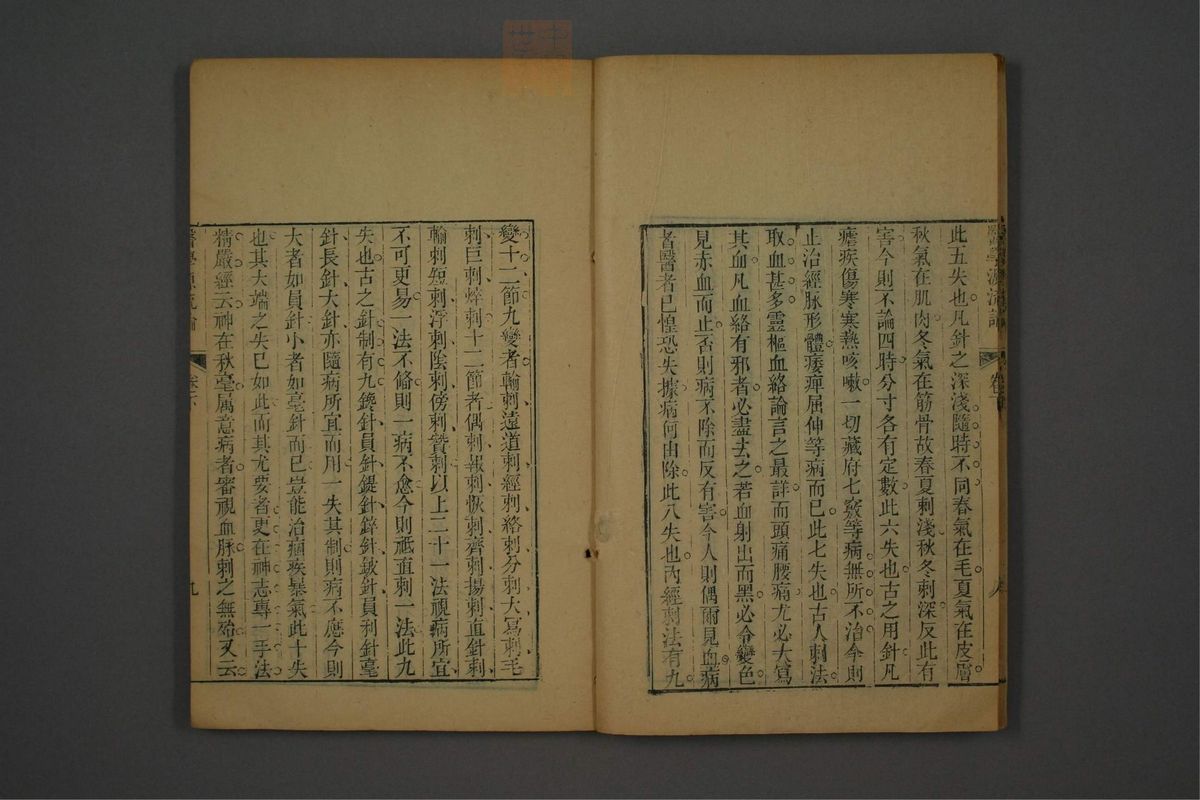 此五失也凡針之深淺隨時不同春氣在毛夏氣在皮膚
秋氣在肌肉冬氣在筋骨故春夏刺淺秋冬刺深反此有
害今則不論四時分寸各有定數此六失也古之用針凡
瘧疾傷寒寒熱咳嗽一切藏府七竅等病無所不治今則
止治經脉形體痿痺屈伸等病而已此七失也古人刺法
取血甚多靈樞血絡論言之最詳而頭痛腰痛尤必大寫
其血凡血絡有邪者必盡去之若血射出而黑必令變色
見赤血而止否則病不除而反有害今人則偶爾見血病
者醫者已惶恐失據病何由除此八失也內經刺法有九
變十二節九變者輸刺遠道刺經刺絡刺分刺大寫刺毛
刺巨刺焠刺十二節者偶刺報刺恢刺齊刺揚刺直針刺
輸刺短刺浮刺陰刺傍刺贊刺以上二十一法視病所宜
不可更易一法不備則一病不愈今則祗直刺一法此九
失也古之針制有九鑱針員針鍉針鋒針鈹針員利針毫
針長針大針亦隨病所宜而用一失其制則病不應今則
大者如員針小者如毫針而已豈能治痼疾暴氣此十失
也其大端之失已如此而其尤要者更在神志專一手法
精嚴經云神在秋毫属意病者審視血脉刺之無殆又云
醫學源流論
卷下
九